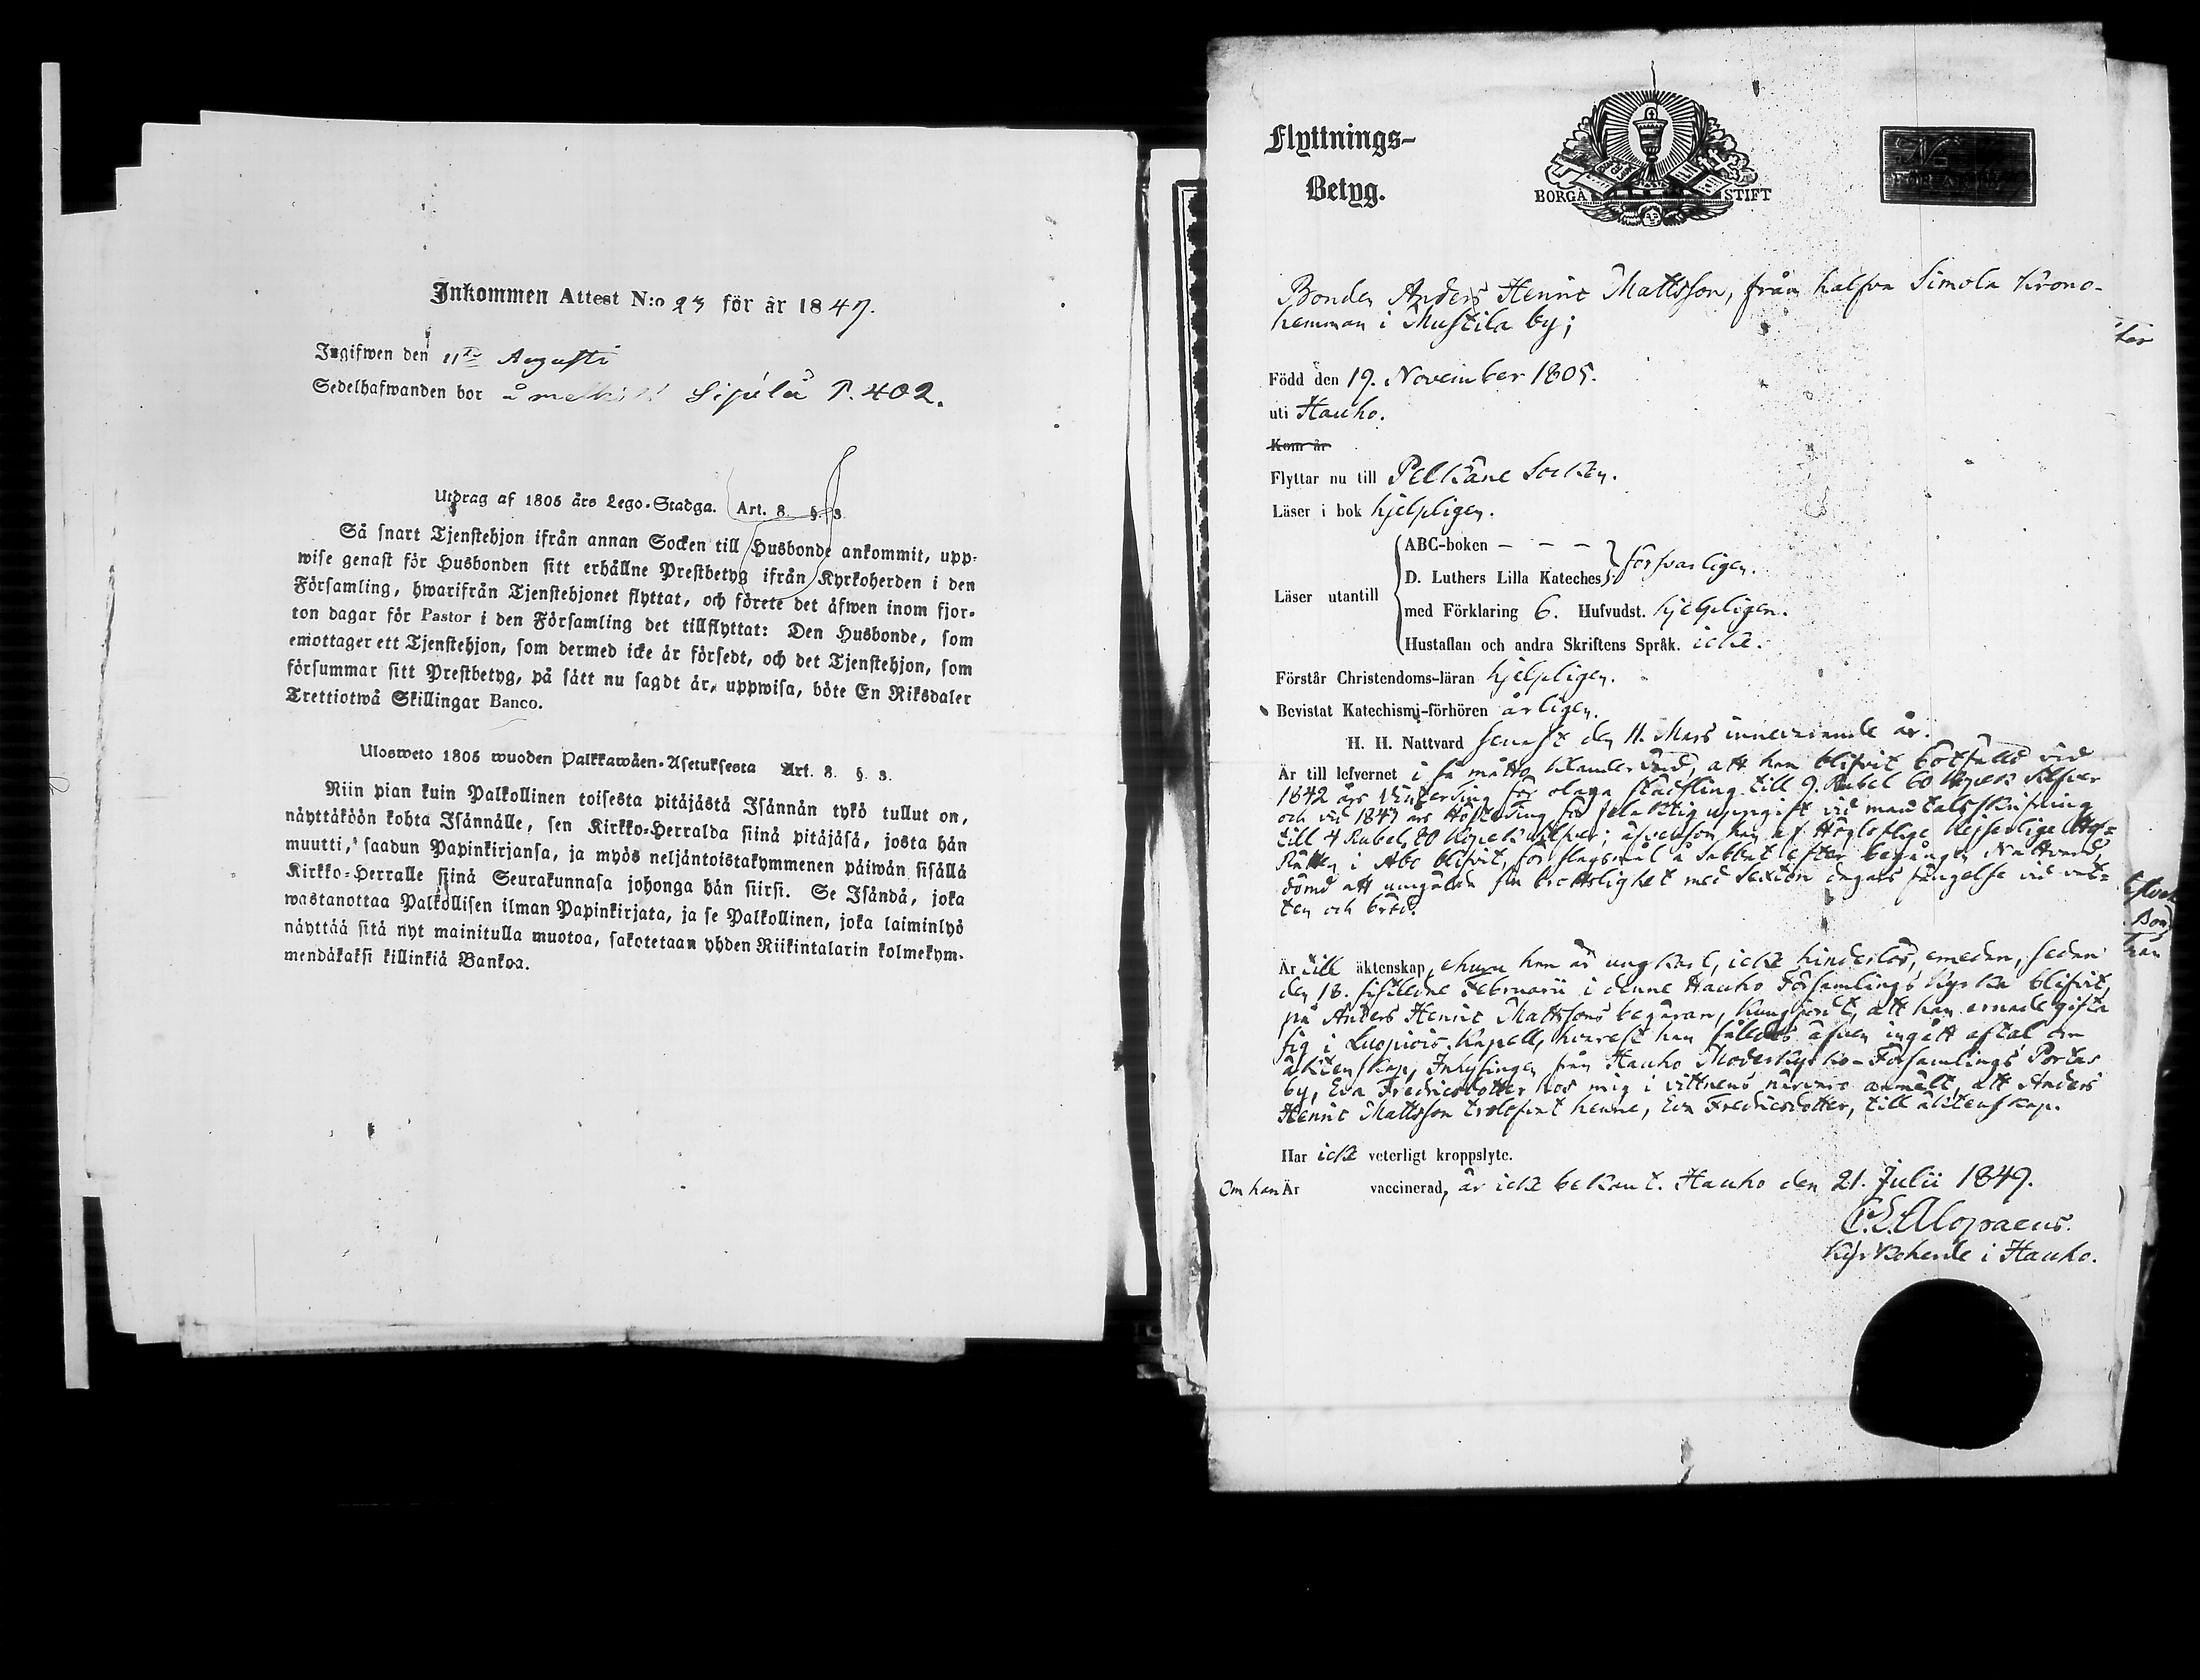 Inkommen Attest N:o 23 för år 1849.
Ingifwen den 11te Augusti
Sedelhafwanden bor å Sipilä P. 402.
Utdrag af 1805 års Lego-Stadga. Art. 8. §. 3
Så snart Tjenstehjon ifrån annan Socken till Husbonde ankommit, upp-
wise genast för Husbonden sitt erhållne Prestbetyg ifrån Kyrkoherden i den
Församling, hwarifrån Tjenstehjonet flyttat, och förete det äfwen inom fjor-
ton dagar för Pastor i den Församling det tillflyttat: Den Husbonde, som
emottager ett Tjenstehjon, som dermed icke är försedt, och det Tjenstehjon, som
försummar sitt Prestbetyg, på sätt nu sagdt är, uppwisa, böte En Riksdaler
Trettiotwå Skillingar Banco.
Ulosweto 1805 wuoden Palkkawäen-Asetuksesta Art. 8. §. 3.
Niin pian kuin Palkollinen toisesta pitäjästä Isännän tykö tullut on,
näyttäköön kohta Isännälle, sen Kirkko-Herralda siinä pitäjäsä, josta hän
muutti, saadun Papinkirjansa, ja myös neljäntoistakymmenen päiwän sisällä
Kirkko-Herralle siinä Seurakunnasa johonga hän siirsi. Se Isändä, joka
wastanottaa Palkollisen ilman Papinkirjata, ja se Palkollinen, joka laiminlyö
näyttää sitä nyt mainitulla muotoa, sakotetaan yhden Riikintalarin kolmekym-
mendäkaksi killinkiä Bankoa.
Flyttnings-
Betyg.
BORGÅ STIFT
Bonden Anders Henric Mattsson, från halfva Simola Krono-
hemman i Mustila by;
Född den 19. November 1805.
uti Hauho.
Kom år
Flyttar nu till Pelkäne Socken.
Läser i bok hjelpligen.
Läser utantill
ABC-boken – – –
D. Luthers Lilla Kateches försvarligen.
med Förklaring 6. Hufvudst. hjelpligen.
Hustaflan och andra Skriftens Språk. icke.
Förstår Christendoms-läran hjelpligen.
Bevistat Katechismi-förhören årligen.
H. H. Nattvard senast den 11. Mars innevarande år.
Är till lefvernet i så måtto klandervärd, att han blifvit bötfälld vid
1842 års Vinterting för olaga städsling till 9. Rubel 60 kopek Silfver
och vid 1847 års Höste Ting för felaktig uppgift vid mantalsskrifning
till 4 Rubel 80 Kopek silfver; äfvensom han af Högloflige Kejserlige Hof-
Rätten i Åbo blifvit, för slagsmål å Sabbat efter begången Nattvard,
dömd att umgälda sin brottslighet med Sexton dagars fängelse vid vat-
ten och bröd.
Är till äktenskap, ehuru han är ungkarl, icke hinderlös, emedan, sedan
den 18. sistledne Februarii i denne Hauho Församlings Kyrka blifvit,
på Anders Henric Mattssons begäran, kungjordt, att han ernade gifta
sig i Luopiois Kapell, hvarest han således äfven ingått aftal om
äktenskap, Inhysingen från Hauho Moderkyrko-Församlings Portas
by, Eva Fredricsdotter hos mig i vittnens närvaro anmält, att Anders
Henric Mattsson trolofvat henne, Eva Fredricsdotter, till äktenskap.
Har icke veterligt kroppslyte.
Om han Är vaccinerad, är icke bekant. Hauho den 21. Julii 1849.
C. S. Alopaeus.
Kyrkoherde i Hauho.